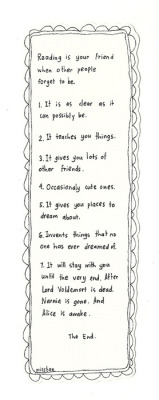 Reading is your friend
when other people
forget to be.
1. It is as clear as it
can possibly be.
2. It teaches you things.
3. It gives you lots of
other friends.
4. Occasionally cute ones.
5. It gives you places to
dream about.
6. Invents things that no
one has ever dreamed of.
7. It will stay with you
until the very end. After
Lord Voldemort is dead.
Narnia is gone. And
Alice is awake.
The End.